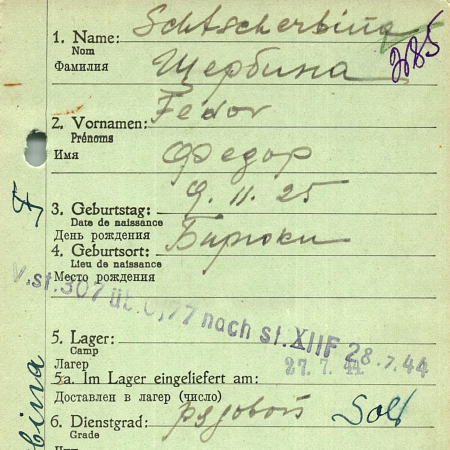 1. Name: Schtscherbina
Nom
Фамилия Щербина
285
2. Vornamen: Fedor
Prénoms
Имя Федор
3. Geburtstag: 9. 11. 25
Date de naissance
День рождения
4. Geburtsort: Бирюки
Lieu de naissance
Место рождения
v. st. 307 üb. 0,77 nach st. XII F 28.7.44
5. Lager:
Camp
Лагер
27. 7. 44
5a. Im Lager eingeliefert am:
Доставлен в лагер (число)
6. Dienstgrad: рядовой Sold
Grade
F
bina